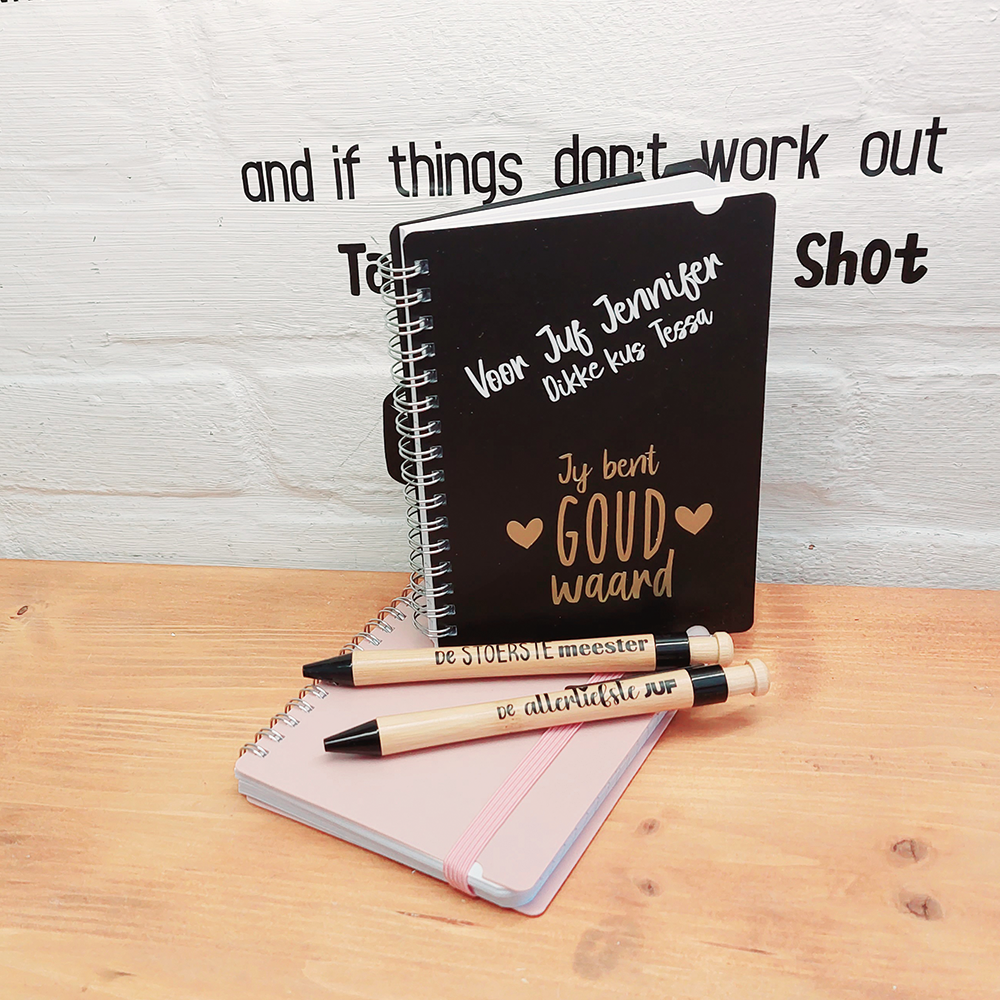 and if things don't work out
Shot
Voor Juf Jennifer
Dikke kus Tessa
Jy bent
GOUD
waard
De STOERSTE meester
De allerliefste JUF